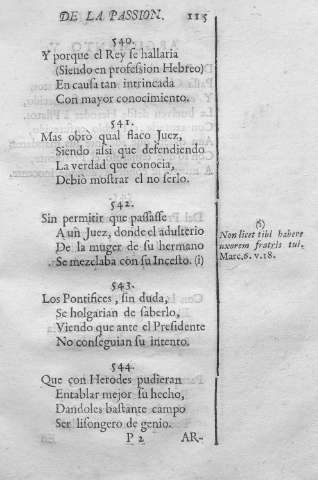 DE LA PASSION. 115
540.
Y porque el Rey se hallaria
(Siendo en profession Hebreo)
En causa tan intrincada
Con mayor conocimiento.
541.
Mas obrò qual flaco Juez,
Siendo assi que defendiendo
La verdad que conocia,
Debiò mostrar el no serlo.
542.
Sin permitir que passasse
A un Juez, donde el adulterio
De la muger de su hermano
Se mezclaba con su Incesto. (i)
(i)
Non licet tibi habere
uxorem fratris tui.
Marc. 6. v. 18.
543.
Los Pontifices, sin duda,
Se holgarian de saberlo,
Viendo que ante el Presidente
No conseguian su intento.
544.
Que con Herodes pudieran
Entablar mejor su hecho,
Dandoles bastante campo
Ser lisongero de genio.
P 2 AR-